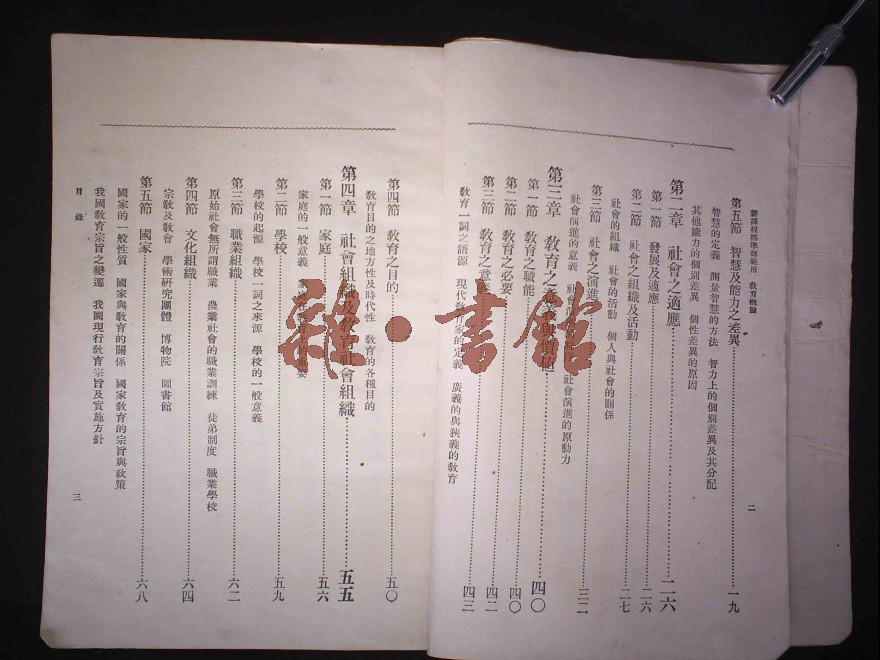 新課程標準師範用　教育概論
二
第五節　智慧及能力之差異……一九
智慧的定義　測量智慧的方法　智力上的個別差異及其分配
其他能力的個別差異　個性差異的原因
第二章　社會之適應……二六
第一節　發展及適應……二六
第二節　社會之組織及活動……二七
社會的組織　社會的活動　個人與社會的關係
第三節　社會之演進……三二
社會演進的意義　社會演進的原動力
第三章　教育之……四〇
第一節　教育之職能……四〇
第二節　教育之必要……四二
第三節　教育之意義……四三
教育一詞之語源　現代教育家的定義　廣義的與狹義的教育
第四節　教育之目的……五〇
教育目的之地方性及時代性　教育的各種目的
第四章　社會組織及教育社會組織……五五
第一節　家庭……五六
家庭的一般意義
第二節　學校……五九
學校的起源　學校一詞之來源　學校的一般意義
第三節　職業組織……六二
原始社會無所謂職業　農業社會的職業訓練　徒弟制度　職業學校
第四節　文化組織……六四
宗教及教會　學術研究團體　博物院　圖書館
第五節　國家……六八
國家的一般性質　國家與教育的關係　國家教育的宗旨與政策
我國教育宗旨之變遷　我國現行教育宗旨及實施方針
目錄
三
雜·書館